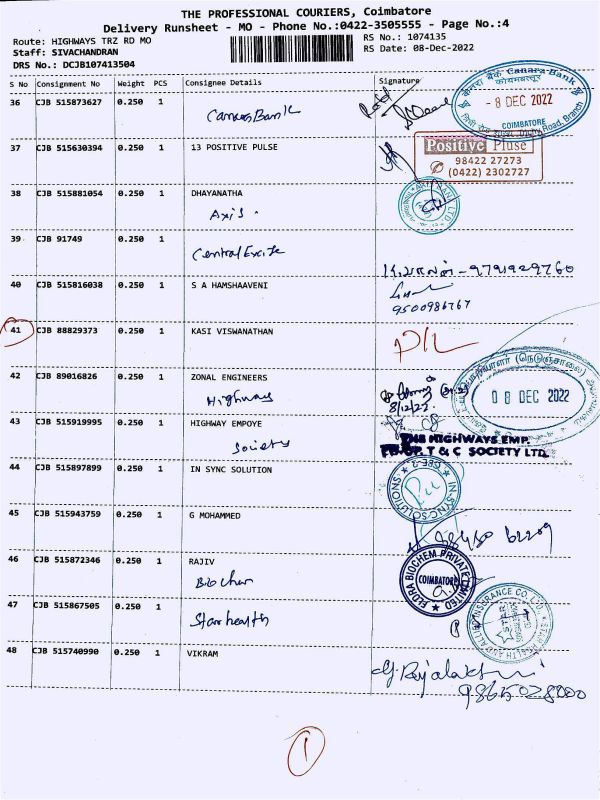 THE PROFESSIONAL COURIERS, Coimbatore
Delivery Runsheet - MO - Phone No.:0422-3505555 - Page No.:4
Route: HIGHWAYS TRZ RD MO
RS No.: 1074135
Staff: SIVACHANDRAN
RS Date: 08-Dec-2022
DRS No.: DCJB107413504
S No Consignment No Weight PCS Consignee Details Signature
36 CJB 515873627 0.250 1
Canara Bank
Canara Bank
केनरा बैंक
- 8 DEC 2022
COIMBATORE
Trichy Road, Branch
37 CJB 515630394 0.250 1 13 POSITIVE PULSE
Positive Pluse
98422 27273
(0422) 2302727
38 CJB 515881054 0.250 1 DHAYANATHA
Axis
39 CJB 91749 0.250 1
Central Excise
9791929760
40 CJB 515816038 0.250 1 S A HAMSHAAVENI
9500986767
41 CJB 88829373 0.250 1 KASI VISWANATHAN
42 CJB 89016826 0.250 1 ZONAL ENGINEERS
Highways
8/12/22
(நெடுஞ்சாலை)
0 8 DEC 2022
43 CJB 515919995 0.250 1 HIGHWAY EMPOYE
Society
THE HIGHWAYS EMP.
CO.OP. T & C SOCIETY LTD.
44 CJB 515897899 0.250 1 IN SYNC SOLUTION
IN-SYNC SOLUTIONS
CBE-2
45 CJB 515943759 0.250 1 G MOHAMMED
46 CJB 515872346 0.250 1 RAJIV
Biochem
FLORA BIOCHEM PRIVATE LIMITED
COIMBATORE
47 CJB 515867505 0.250 1
Star health
STAR HEALTH AND ALLIED INSURANCE CO. LTD.
STAR
48 CJB 515740990 0.250 1 VIKRAM
G. Rajalakshmi
1